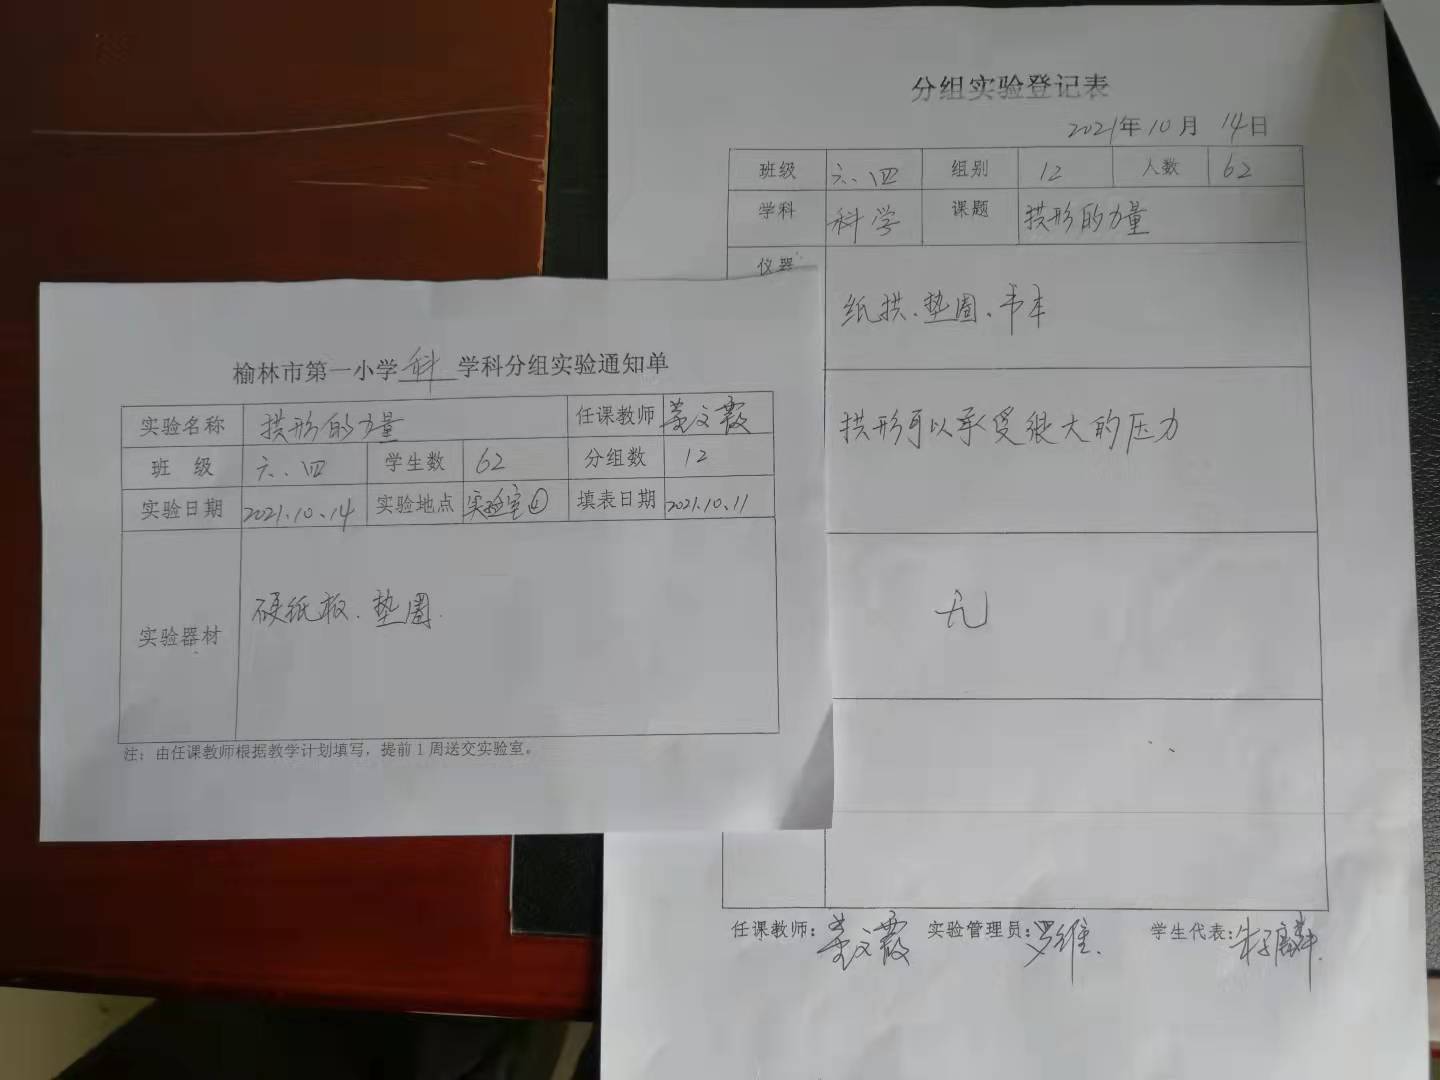 榆林市第一小学科学科分组实验通知单
实验名称 拱形的力量 任课教师 姜文霞
班级 六、四 学生数 62 分组数 12
实验日期 2021.10.14 实验地点 实验室④ 填表日期 2021.10.11
实验器材 硬纸板、垫圈.
注：由任课教师根据教学计划填写，提前1周送交实验室。
分组实验登记表
2021年10月14日
班级 六、四 组别 12 人数 62
学科 科学 课题 拱形的力量
仪器 纸拱、垫圈、书本
拱形可以承受很大的压力
无
任课教师：姜文霞 实验管理员：罗维. 学生代表：